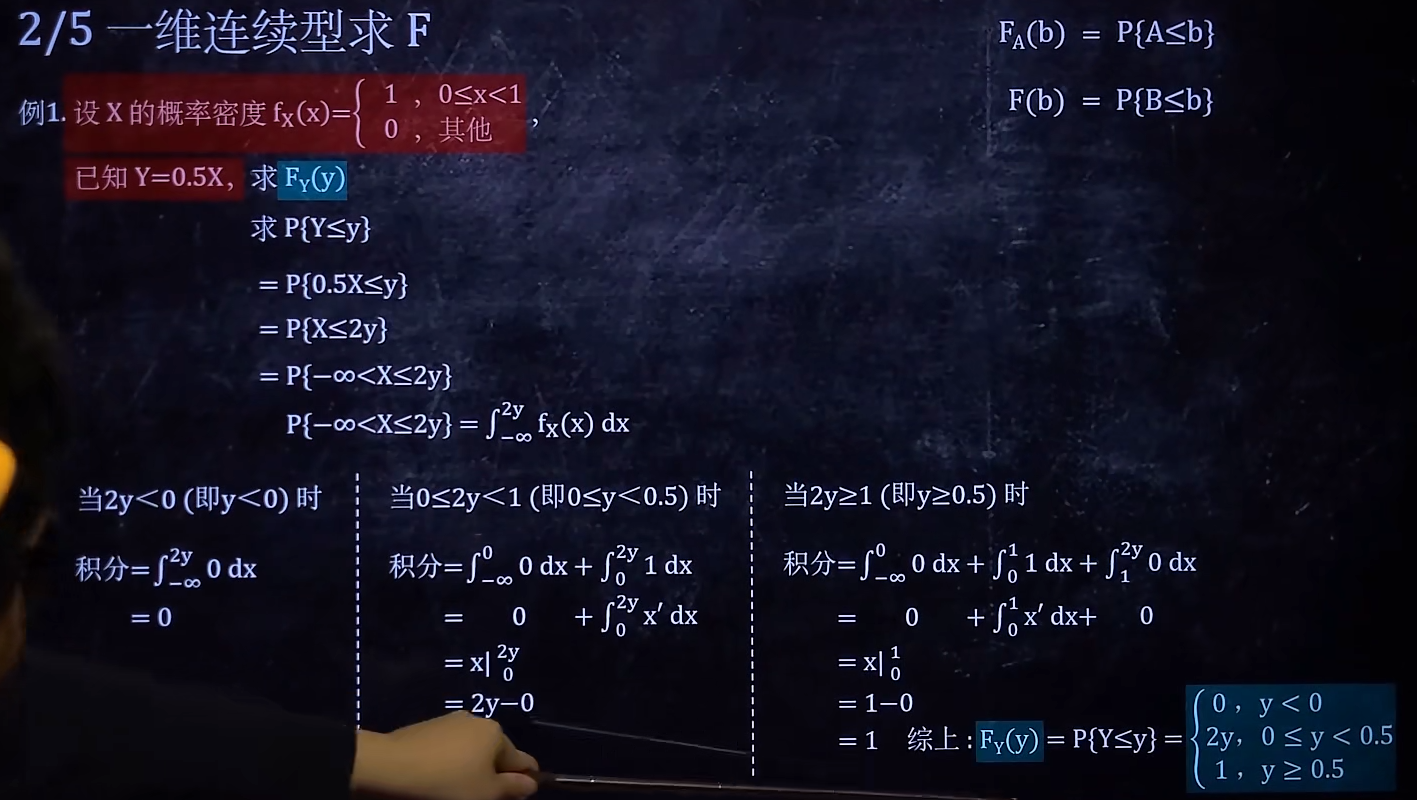 2/5 一维连续型求 F
F_A(b) = P{A≤b}
F(b) = P{B≤b}
例1. 设 X 的概率密度 f_X(x)={ 1 , 0≤x<1
0 , 其他 ,
已知 Y=0.5X, 求 F_Y(y)
求 P{Y≤y}
= P{0.5X≤y}
= P{X≤2y}
= P{−∞<X≤2y}
P{−∞<X≤2y} = ∫_{−∞}^{2y} f_X(x) dx
当2y<0 (即y<0) 时
积分=∫_{−∞}^{2y} 0 dx
= 0
当0≤2y<1 (即0≤y<0.5) 时
积分=∫_{−∞}^{0} 0 dx + ∫_{0}^{2y} 1 dx
= 0 + ∫_{0}^{2y} x′ dx
= x|_{0}^{2y}
= 2y−0
当2y≥1 (即y≥0.5) 时
积分=∫_{−∞}^{0} 0 dx + ∫_{0}^{1} 1 dx + ∫_{1}^{2y} 0 dx
= 0 + ∫_{0}^{1} x′ dx+ 0
= x|_{0}^{1}
= 1−0
= 1
综上 : F_Y(y) = P{Y≤y} = { 0 , y < 0
2y, 0 ≤ y < 0.5
1 , y ≥ 0.5